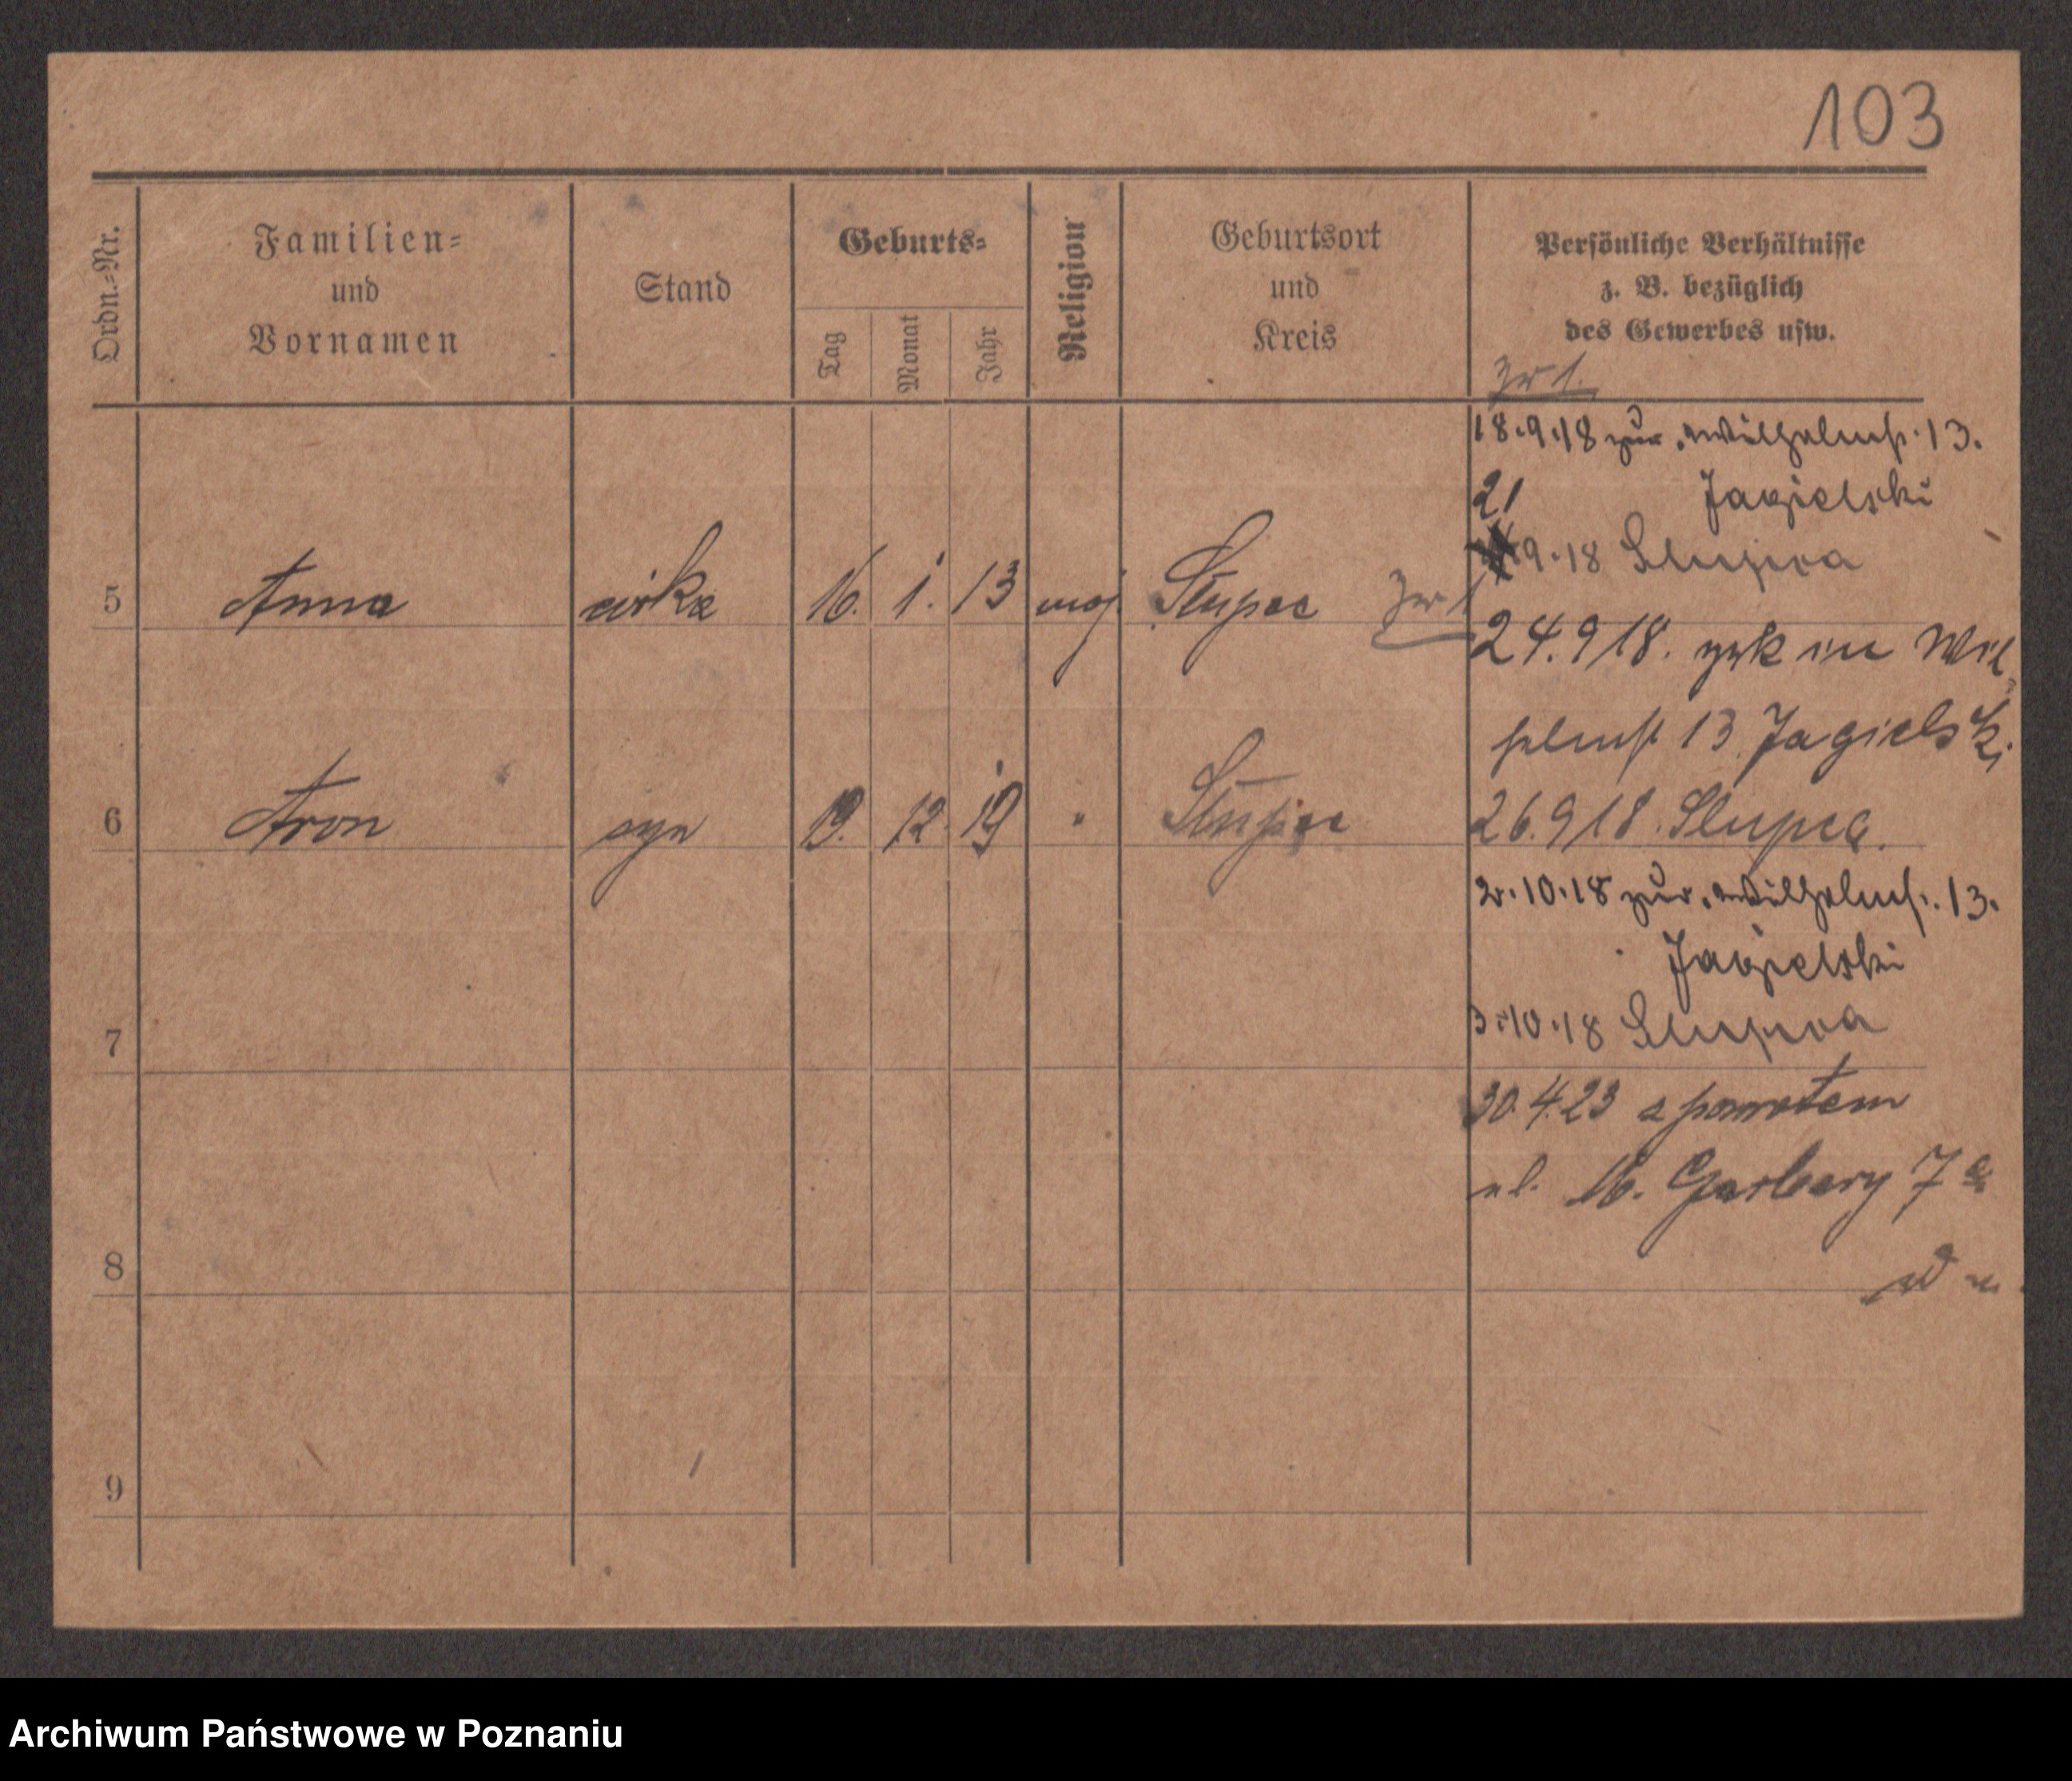 103
Ordn.=Nr.
Familien=
und
Vornamen
Stand
Geburts=
Tag
Monat
Jahr
Religion
Geburtsort
und
Kreis
Persönliche Verhältnisse
z. B. bezüglich
des Gewerbes usw.
zu 1.
18.9.18 zur. Wilhelmst. 13.
21 Jagielski
9.18 Slupca
5 Anna córka 16. 1. 13 moj. Słupca zu 1
24.9 18. zrk in Wil
helmst 13 Jagielski
6 Aron syn 19. 12 19 " Słupca
26.9 18. Slupca.
2.10.18 zur. Wilhelmst. 13.
Jagielski
7
3.10.18 Slupca
30.4.23 z powrotem
ul. M. Garbary 7a
8
9
Archiwum Państwowe w Poznaniu